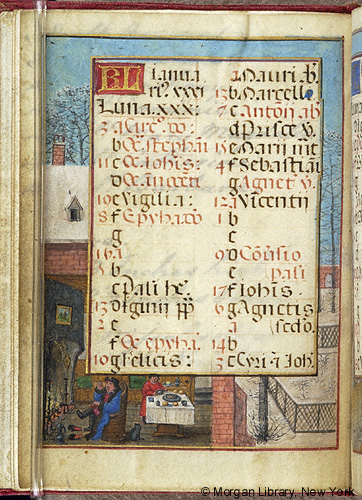 KL Ianua
riꝰ xxxi
Luna. xxx:
3 a Circ̄. dō:
b Oc̄ stephan
11 c Oc̄ Iohis:
d Oc̄ innocēti
10 e Vigilia:
8 f Epyha. dō
g
16 a
5 b
c Pauli he.
13 d
2 e
f Oc̄ epyha:
10 g Felicis:
a Mauri. ab.
b Marcell
7 c Antōij ab
d Prisce v.
15 e Marij mt
4 f Sebastiāi
g Agnet v.
12 a Vicentij
1 b
c
9 d Cōūsio
e pauli
17 f Iohis.
6 g Agnetis
a scdo.
14 b
3 c Cyri ⁊ Ioh.
© Morgan Library, New York